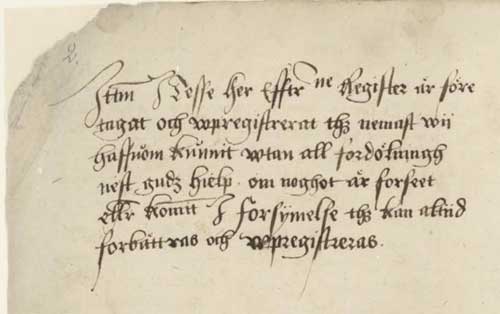 2.
Item Desse her Efftr ne Register är före
tagat och wpregistrerat thz nemast wii
haffuom kunnit wtan all fordölningh
nest gudz hielp. om noghot är forseet
ellr komit I forsymelse thz kan altiid
forbättras och wpregistreras.